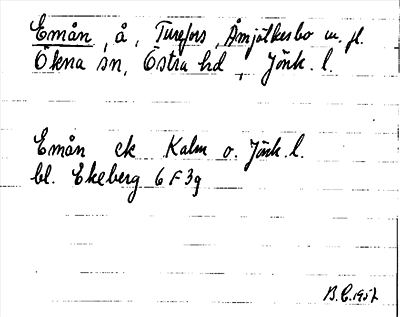 Emån, å, Turefors, Åmjölkesbo m. fl.
Ökna sn, Östra hd, Jönk. l.
Emån ek Kalm o. Jönk. l.
bl. Ekeberg 6 F 3g
B.C. 1957